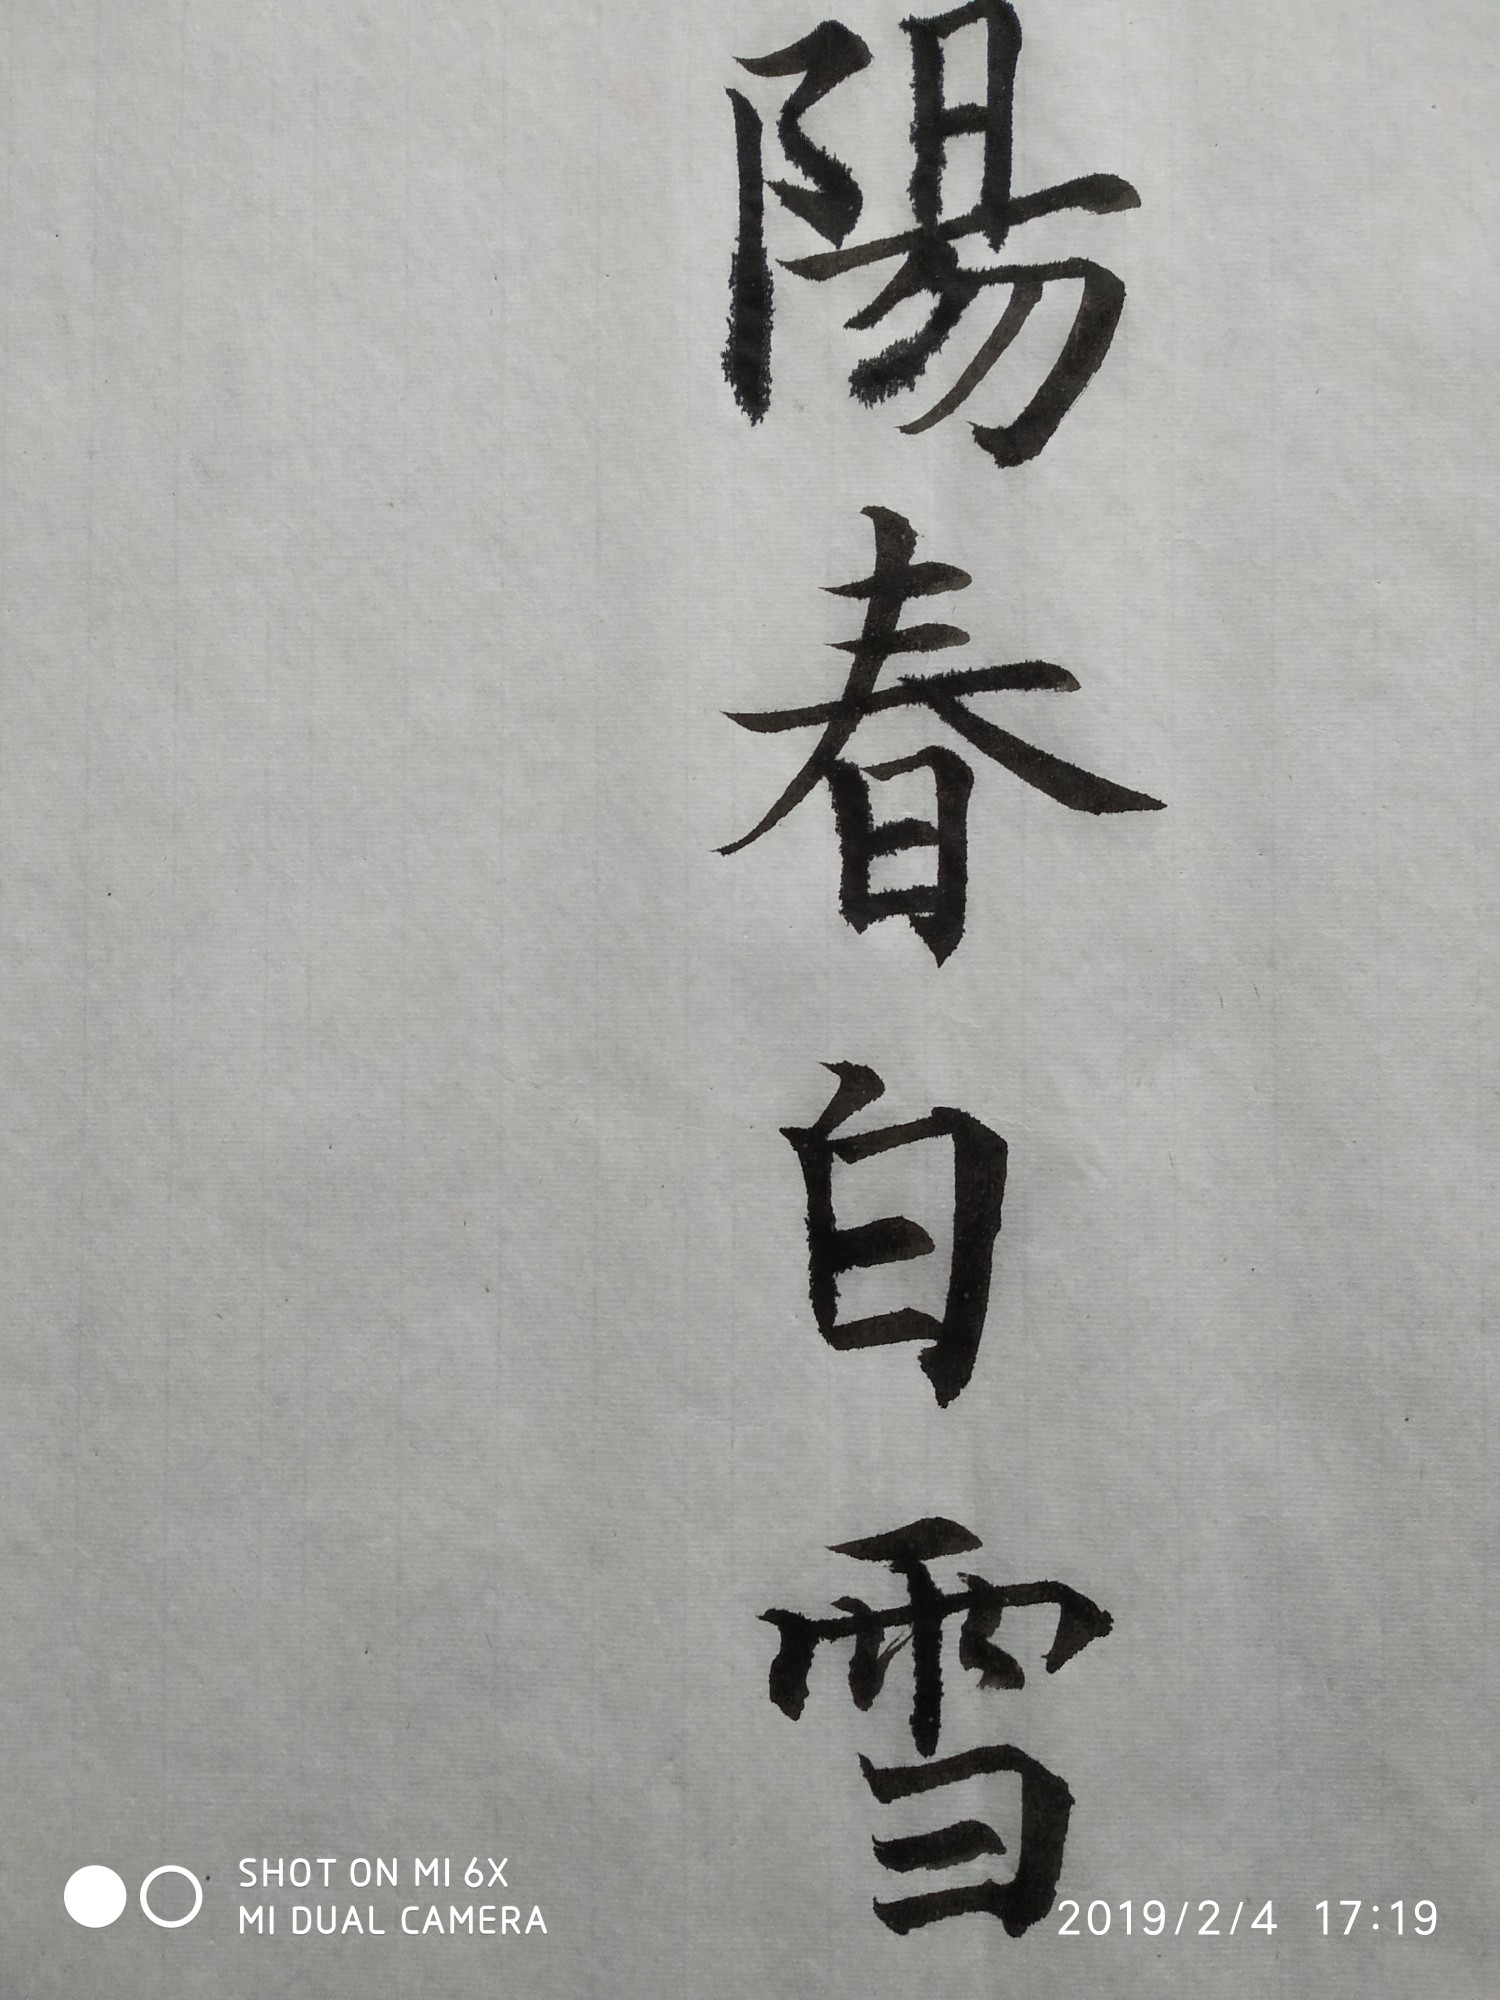 陽春白雪
SHOT ON MI 6X
MI DUAL CAMERA
2019/2/4 17:19